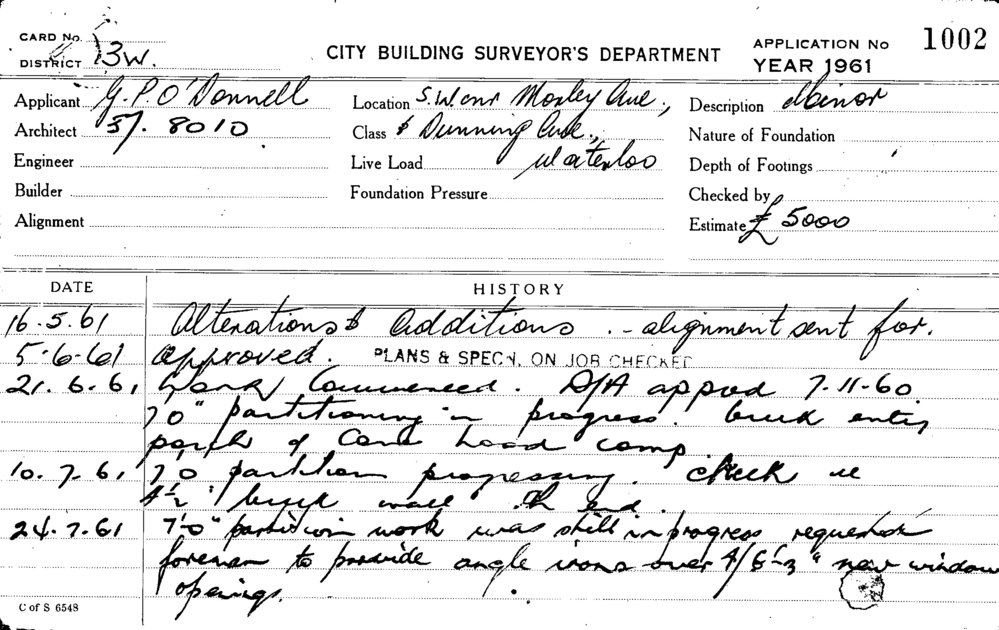 CARD No.
DISTRICT 3W.
CITY BUILDING SURVEYOR'S DEPARTMENT
APPLICATION No 1002
YEAR 1961
Applicant G. P. O'Donnell
Location S.W. cnr Morley Ave.,
Description Minor
Architect 37. 8010
Class & Dunning Ave.,
Nature of Foundation
Engineer
Live Load Waterloo
Depth of Footings
Builder
Foundation Pressure
Checked by
Alignment
Estimate £ 5000
DATE HISTORY
16.5.61 Alterations & additions .- alignment sent for.
5.6.61 approved. PLANS & SPECN. ON JOB CHECKED
21.6.61 work commenced. D/A appvd 7-11-60.
7'0" partitioning in progress. brick entry
porch & conc hood comp.
10.7.61 7'0 partition progressing. check
4½" brick wall end.
24.7.61 7'-0" partition work was still in progress requested
foreman to provide angle irons over 4/6'-3" new window
openings.
C of S 6548